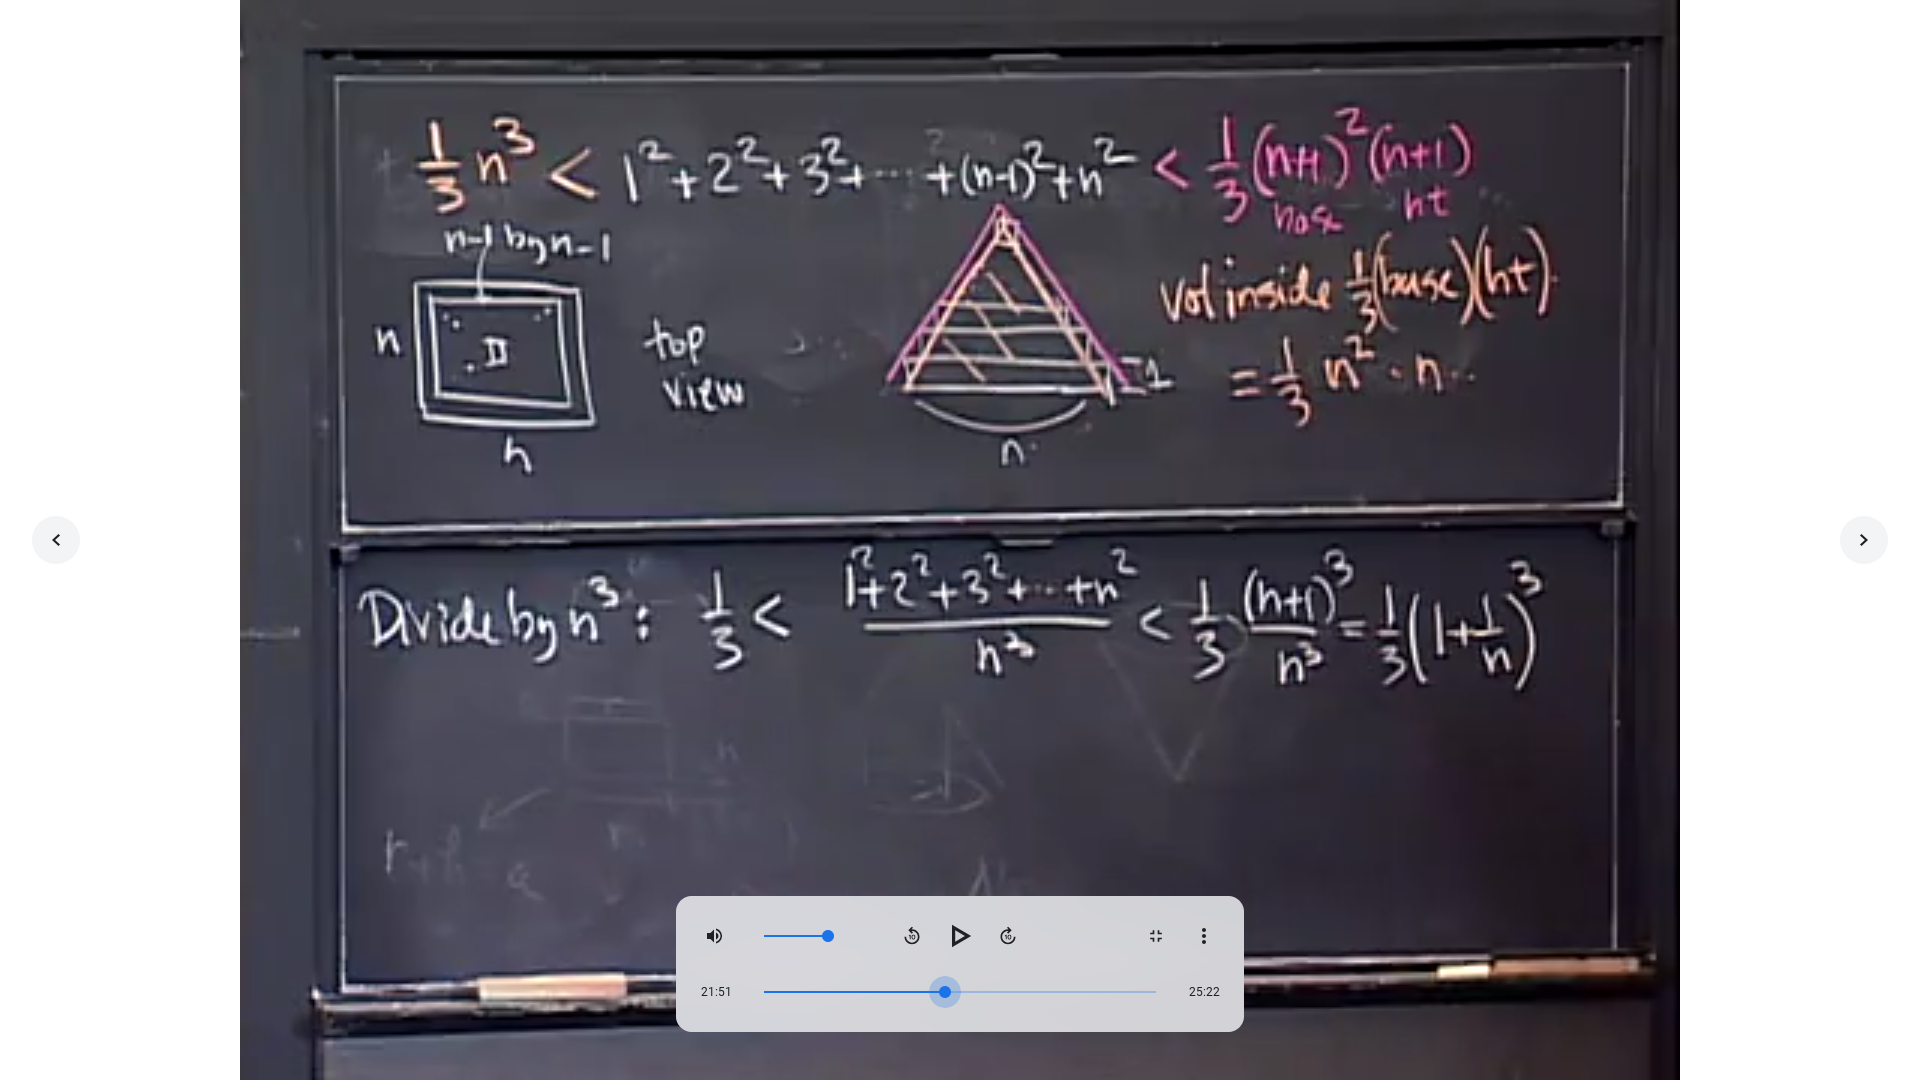 1/3 n³ < 1² + 2² + 3² + ⋯ + (n-1)² + n² < 1/3 (n+1)² (n+1)
base ht
n-1 by n-1
n
top
view
n
1
n
vol inside 1/3 (base)(ht)
= 1/3 n² · n
Divide by n³: 1/3 < (1² + 2² + 3² + ⋯ + n²)/n³ < 1/3 (n+1)³/n³ = 1/3 (1 + 1/n)³
21:51
25:22